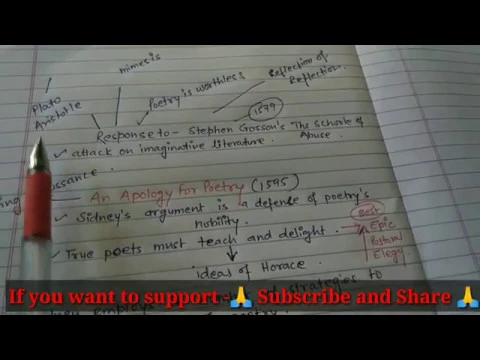 mimesis
Reflection of
Reflection.
Poetry is worthless
Plato
Aristotle
1579
Response to - Stephen Gosson's The Schoole of
Abuse.
✓ attack on imaginative literature.
An Apology for Poetry (1595)
✓ Sidney's argument is a defense of poetry's
nobility.
Best
✓ True poets must teach and delight.
Epic
Pastoral
Elegy
ideas of Horace.
If you want to support -🙏 Subscribe and Share 🙏
strategies to